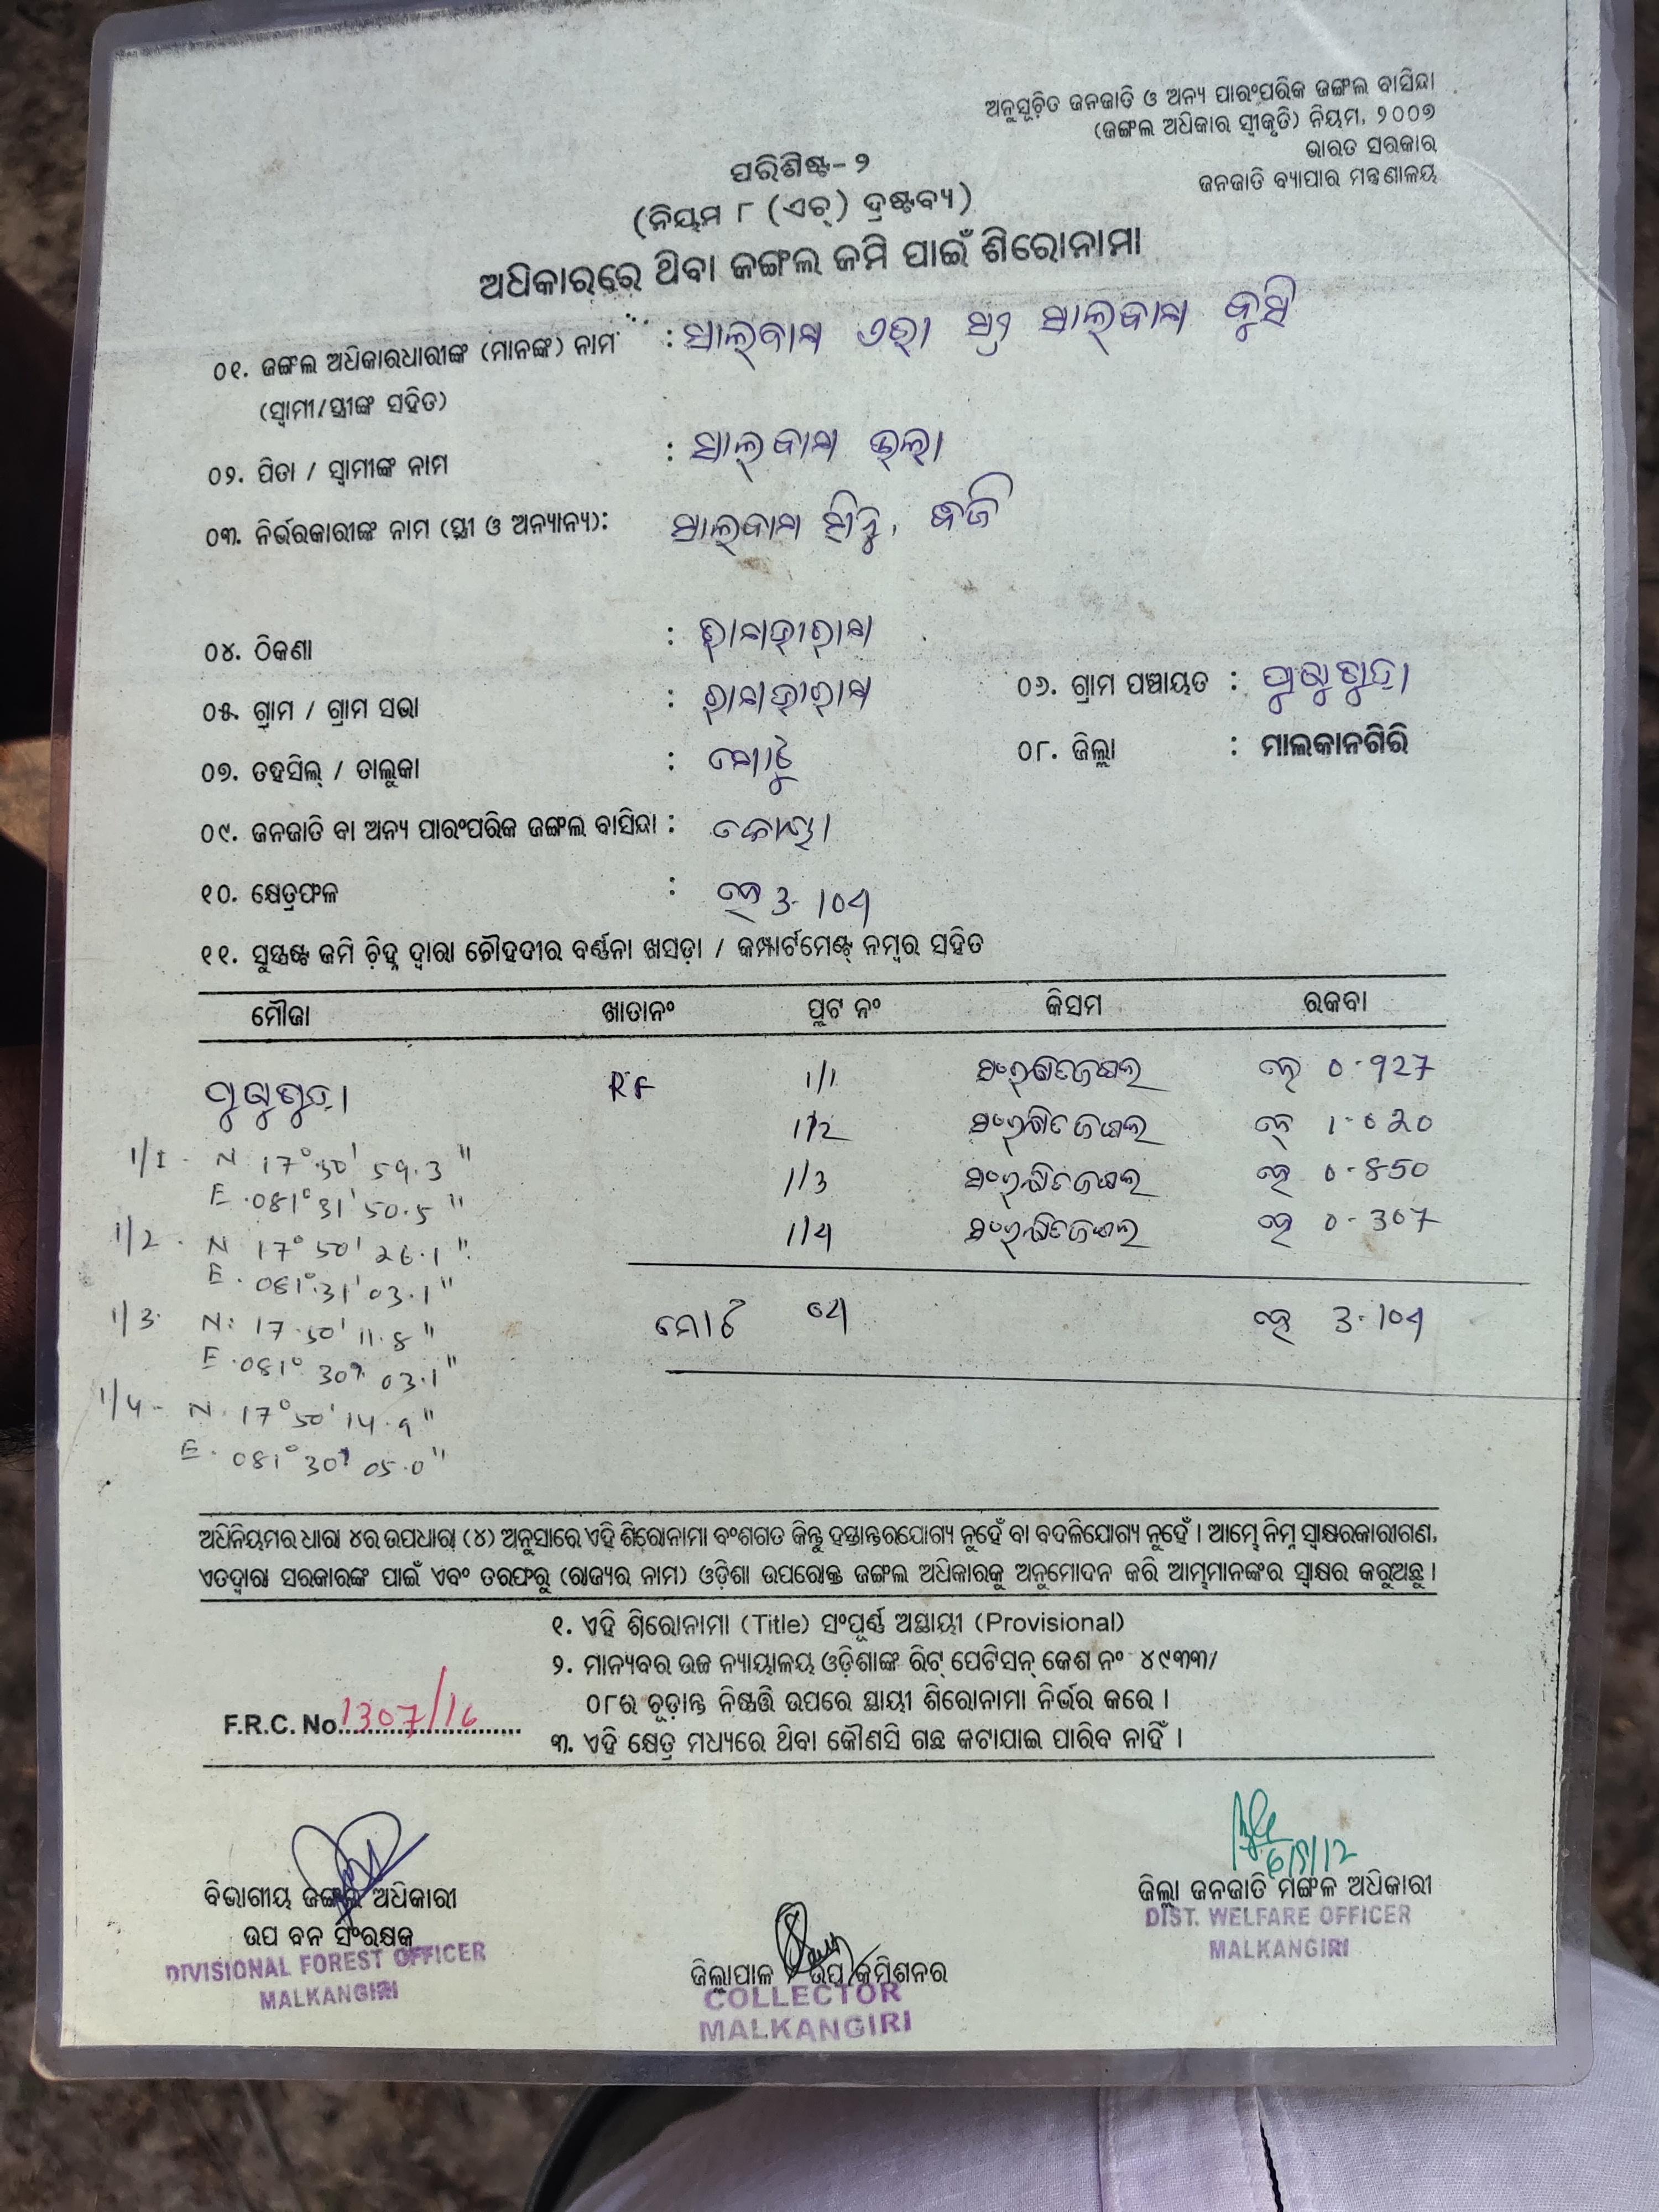 ଅନୁସୂଚିତ ଜନଜାତି ଓ ଅନ୍ୟ ପାରଂପରିକ ଜଙ୍ଗଲ ବାସିନ୍ଦା
(ଜଙ୍ଗଲ ଅଧିକାର ସ୍ୱୀକୃତି) ନିୟମ, ୨୦୦୭
ଭାରତ ସରକାର
ଜନଜାତି ବ୍ୟାପାର ମନ୍ତ୍ରଣାଳୟ
ପରିଶିଷ୍ଟ-୨
(ନିୟମ ୮ (ଏଚ୍) ଦ୍ରଷ୍ଟବ୍ୟ)
ଅଧିକାରରେ ଥିବା ଜଙ୍ଗଲ ଜମି ପାଇଁ ଶିରୋନାମା
୦୧. ଜଙ୍ଗଲ ଅଧିକାରଧାରୀଙ୍କ (ମାନଙ୍କ) ନାମ :
(ସ୍ୱାମୀ/ସ୍ତ୍ରୀଙ୍କ ସହିତ)
୦୨. ପିତା / ସ୍ୱାମୀଙ୍କ ନାମ :
୦୩. ନିର୍ଭରକାରୀଙ୍କ ନାମ (ସ୍ତ୍ରୀ ଓ ଅନ୍ୟାନ୍ୟ):
୦୪. ଠିକଣା :
୦୫. ଗ୍ରାମ / ଗ୍ରାମ ସଭା : ୦୬. ଗ୍ରାମ ପଞ୍ଚାୟତ :
୦୭. ତହସିଲ୍ / ତାଲୁକା : ୦୮. ଜିଲ୍ଲା : ମାଲକାନଗିରି
୦୯. ଜନଜାତି ବା ଅନ୍ୟ ପାରଂପରିକ ଜଙ୍ଗଲ ବାସିନ୍ଦା : କୋୟା
୧୦. କ୍ଷେତ୍ରଫଳ : ହେ 3.104
୧୧. ସୁସ୍ପଷ୍ଟ ଜମି ଚିହ୍ନ ଦ୍ୱାରା ଚୌହଦୀର ବର୍ଣ୍ଣନା ଖସଡ଼ା / କମ୍ପାର୍ଟମେଣ୍ଟ୍ ନମ୍ବର ସହିତ
ମୌଜା ଖାତାନଂ ପ୍ଲଟ ନଂ କିସମ ରକବା
RF 1/1 ସଂରକ୍ଷିତ ଜଙ୍ଗଲ ହେ 0.927
1/2 ସଂରକ୍ଷିତ ଜଙ୍ଗଲ ହେ 1.020
1/3 ସଂରକ୍ଷିତ ଜଙ୍ଗଲ ହେ 0.850
1/4 ସଂରକ୍ଷିତ ଜଙ୍ଗଲ ହେ 0.307
ମୋଟ ହେ 3.104
1/1 - N 17° 59.3"
E. 081° 31' 50.5"
1/2 - N 17° 50' 26.1"
E. 081° 31' 03.1"
1/3 N: 17.50' 11.8"
E. 081° 30' 03.1"
1/4 - N. 17° 50' 14.9"
E. 081° 30' 05.0"
ଅଧିନିୟମର ଧାରା ୪ର ଉପଧାରା (୪) ଅନୁସାରେ ଏହି ଶିରୋନାମା ବଂଶଗତ କିନ୍ତୁ ହସ୍ତାନ୍ତରଯୋଗ୍ୟ ନୁହେଁ ବା ବଦଳିଯୋଗ୍ୟ ନୁହେଁ । ଆମ୍ଭେ ନିମ୍ନ ସ୍ୱାକ୍ଷରକାରୀଗଣ,
ଏତଦ୍ୱାରା ସରକାରଙ୍କ ପାଇଁ ଏବଂ ତରଫରୁ (ରାଜ୍ୟର ନାମ) ଓଡ଼ିଶା ଉପରୋକ୍ତ ଜଙ୍ଗଲ ଅଧିକାରକୁ ଅନୁମୋଦନ କରି ଆମ୍ଭମାନଙ୍କର ସ୍ୱାକ୍ଷର କରୁଅଛୁ ।
୧. ଏହି ଶିରୋନାମା (Title) ସଂପୂର୍ଣ୍ଣ ଅସ୍ଥାୟୀ (Provisional)
୨. ମାନ୍ୟବର ଉଚ୍ଚ ନ୍ୟାୟାଳୟ ଓଡ଼ିଶାଙ୍କ ରିଟ୍ ପେଟିସନ୍ କେଶ ନଂ ୪୯୩୩/
୦୮ର ଚୂଡ଼ାନ୍ତ ନିଷ୍ପତ୍ତି ଉପରେ ସ୍ଥାୟୀ ଶିରୋନାମା ନିର୍ଭର କରେ ।
F.R.C. No. 1307/16
୩. ଏହି କ୍ଷେତ୍ର ମଧ୍ୟରେ ଥିବା କୌଣସି ଗଛ କଟାଯାଇ ପାରିବ ନାହିଁ ।
6/9/12
ବିଭାଗୀୟ ଜଙ୍ଗଲ ଅଧିକାରୀ
ଉପ ବନ ସଂରକ୍ଷକ
DIVISIONAL FOREST OFFICER
MALKANGIRI
ଜିଲ୍ଲାପାଳ / ଉପ କମିଶନର
COLLECTOR
MALKANGIRI
ଜିଲ୍ଲା ଜନଜାତି ମଙ୍ଗଳ ଅଧିକାରୀ
DIST. WELFARE OFFICER
MALKANGIRI